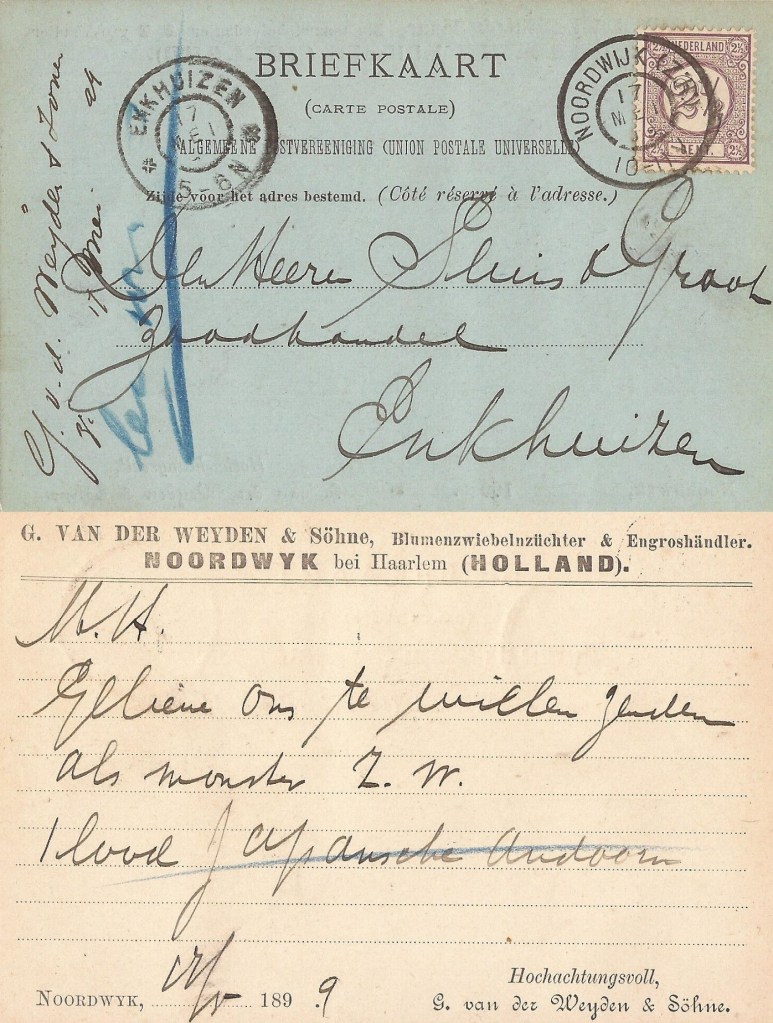 BRIEFKAART
(CARTE POSTALE)
ALGEMEENE POSTVEREENIGING (UNION POSTALE UNIVERSELLE)
Zijde voor het adres bestemd. (Côté réservé à l'adresse.)
ENKHUIZEN
17 MEI
5-6N
NOORDWIJK
17 MEI
NEDERLAND
2½ 2½
CENT.
2½ 2½
G. v. d. Weijden & Zonen
17 Mei
Den Heeren Sluis & Groot
Zaadhandel
Enkhuizen
G. VAN DER WEYDEN & Söhne, Blumenzwiebelnzüchter & Engroshändler.
NOORDWYK bei Haarlem (HOLLAND).
M.H.
Gelieve ons te willen zenden
als monster Z. W.
1 lood Japansche Andoorn
NOORDWYK, 17/5 1899
Hochachtungsvoll,
G. van der Weyden & Söhne.